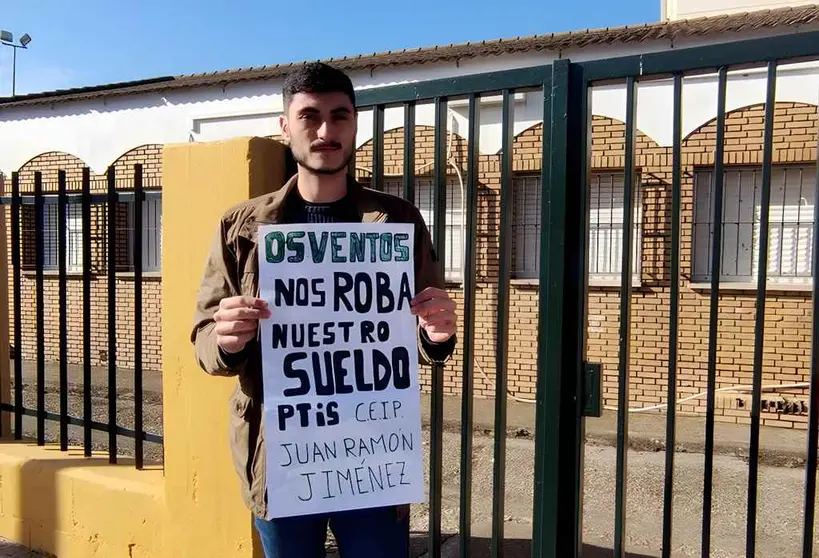 OSVENTOS
NOS ROBA
NUESTRO
SUELDO
PTiS C.E.I.P.
JUAN RAMÓN
JIMÉNEZ